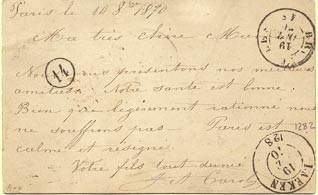 Paris le 18 8bre 1870
Ma très chère Mère
14
Nous vous présentons nos meilleures
amitiés. Notre santé est bonne.
Bien que légèrement rationné nous
ne souffrons pas — Paris est
calme et résigné.
Votre fils tout dévoué
19
1282